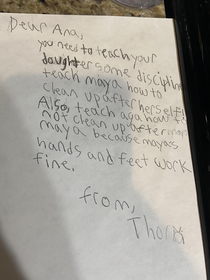 Dear Ana,
you need to teach your
daughter some discipline
teach maya how to
clean up after herself!
Also, teach aga how
not clean up after
maya because mayas
hands and feet work
fine.
from,